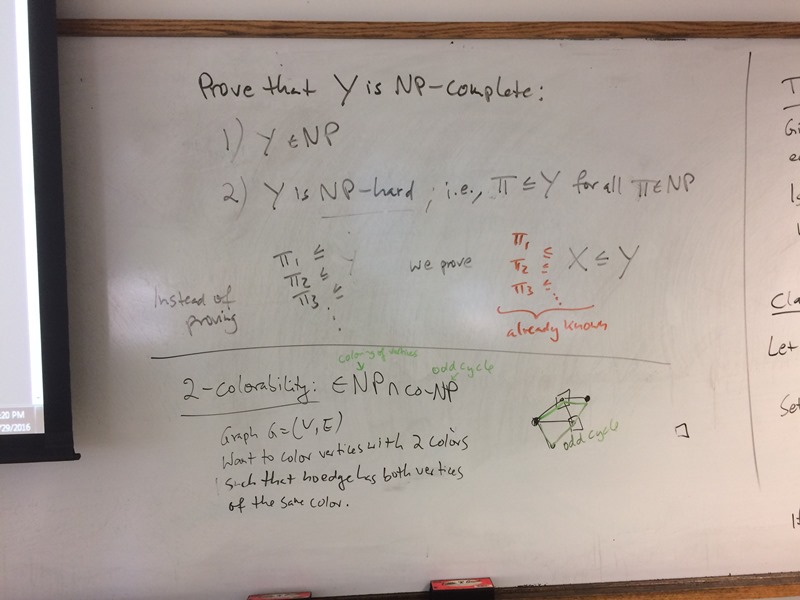 Prove that Y is NP-complete:
1) Y ∈ NP
2) Y is NP-hard, i.e., Π ≤ Y for all Π ∈ NP
Instead of
proving
Π1 ≤
Π2 ≤ Y
Π3 ≤
⋮
we prove
Π1 ≤
Π2 ≤ X ≤ Y
Π3 ≤
⋮
already known
coloring of vertices
odd cycle
2-colorability: ∈ NP ∩ co-NP
Graph G=(V,E)
Want to color vertices with 2 colors
such that no edge has both vertices
of the same color.
odd cycle
T
Gi
e
Is
Cla
Let
Set
If
:20 PM
/29/2016